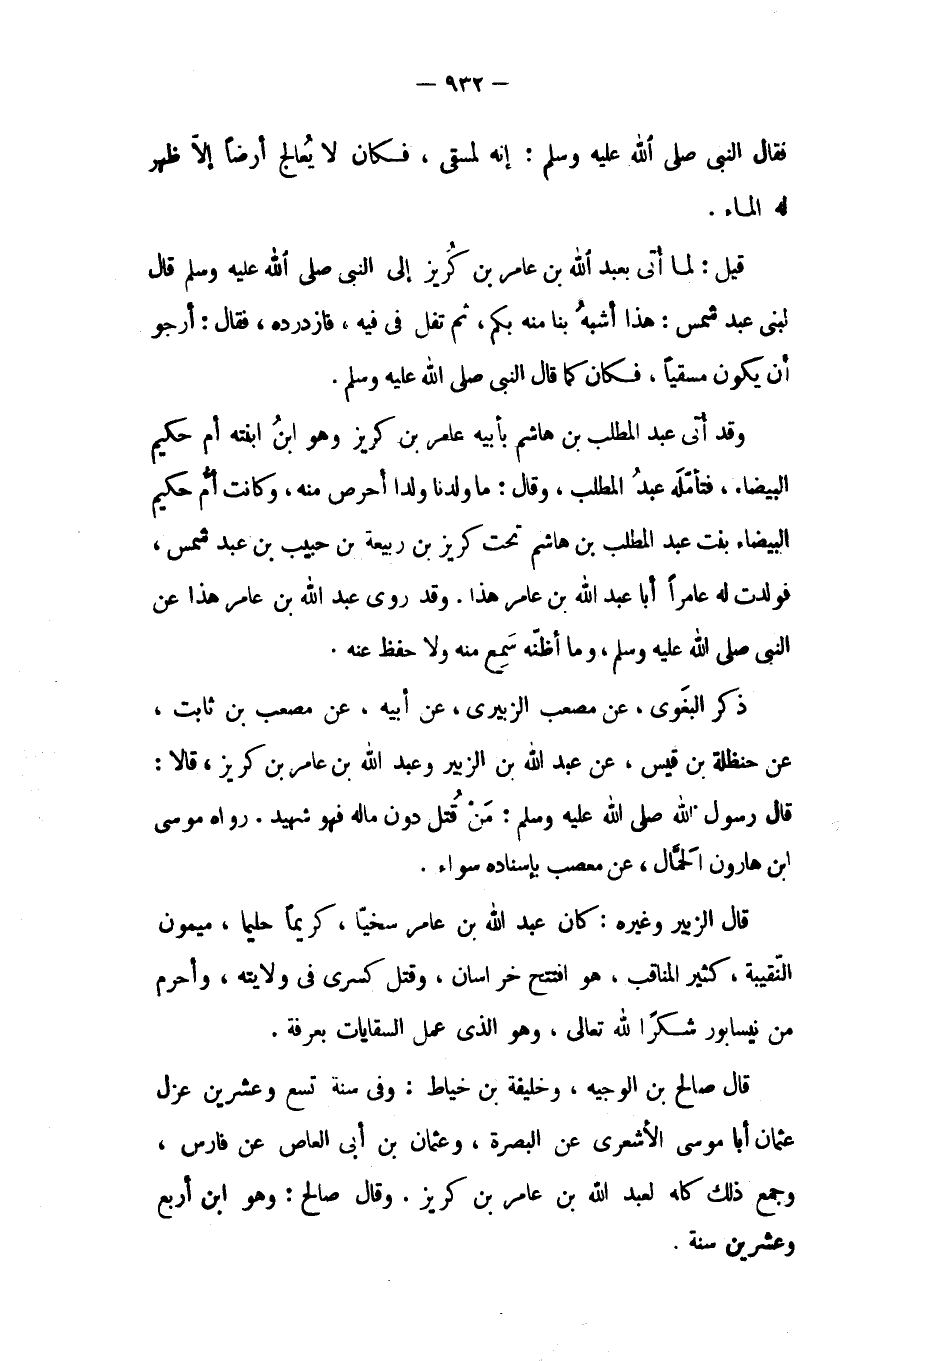 — ٩٣٢ —
فقال النبى صلى الله عليه وسلم : إنه لمسقى ، فكان لا يُعالج أرضاً إلاّ ظهر
له الماء .
قيل : لما أتى بعبد الله بن عامر بن كُريز إلى النبى صلى الله عليه وسلم قال
لبنى عبد شمس : هذا أشبهُ بنا منه بكم، ثم تفل فى فيه ، فازدرده ، فقال : أرجو
أن يكون مسقياً ، فكان كما قال النبى صلى الله عليه وسلم .
وقد أتى عبد المطلب بن هاشم بأبيه عامر بن كريز وهو ابنُ ابنته أم حكيم
البيضاء ، فتأمّلَه عبدُ المطلب ، وقال : ما ولدنا ولدا أحرص منه ، وكانت أمّ حكيم
البيضاء بنت عبد المطلب بن هاشم تحت كريز بن ربيعة بن حبيب بن عبد شمس ،
فولدت له عامراً أبا عبد الله بن عامر هذا . وقد روى عبد الله بن عامر هذا عن
النبى صلى الله عليه وسلم ، وما أظنّه سَمِع منه ولا حفظ عنه .
ذكر البغَوى ، عن مصعب الزبيرى ، عن أبيه ، عن مصعب بن ثابت ،
عن حنظلة بن قيس ، عن عبد الله بن الزبير وعبد الله بن عامر بن كريز ، قالا :
قال رسول الله صلى الله عليه وسلم : مَنْ قُتل دون ماله فهو شهيد . رواه موسى
ابن هارون الحمَّال ، عن معصب بإسناده سواء .
قال الزبير وغيره : كان عبد الله بن عامر سخيّا ، كريماً حليما ، ميمون
النّقيبة ، كثير المناقب ، هو افتتح خراسان ، وقتل كسرى فى ولايته ، وأحرم
من نيسابور شكرًا لله تعالى ، وهو الذى عمل السقايات بعرفة .
قال صالح بن الوجيه ، وخليفة بن خياط : وفى سنة تسع وعشرين عزل
عثمان أبا موسى الأشعرى عن البصرة ، وعثمان بن أبى العاص عن فارس ،
وجمع ذلك كله لعبد الله بن عامر بن كريز . وقال صالح : وهو ابن أربع
وعشرين سنة .